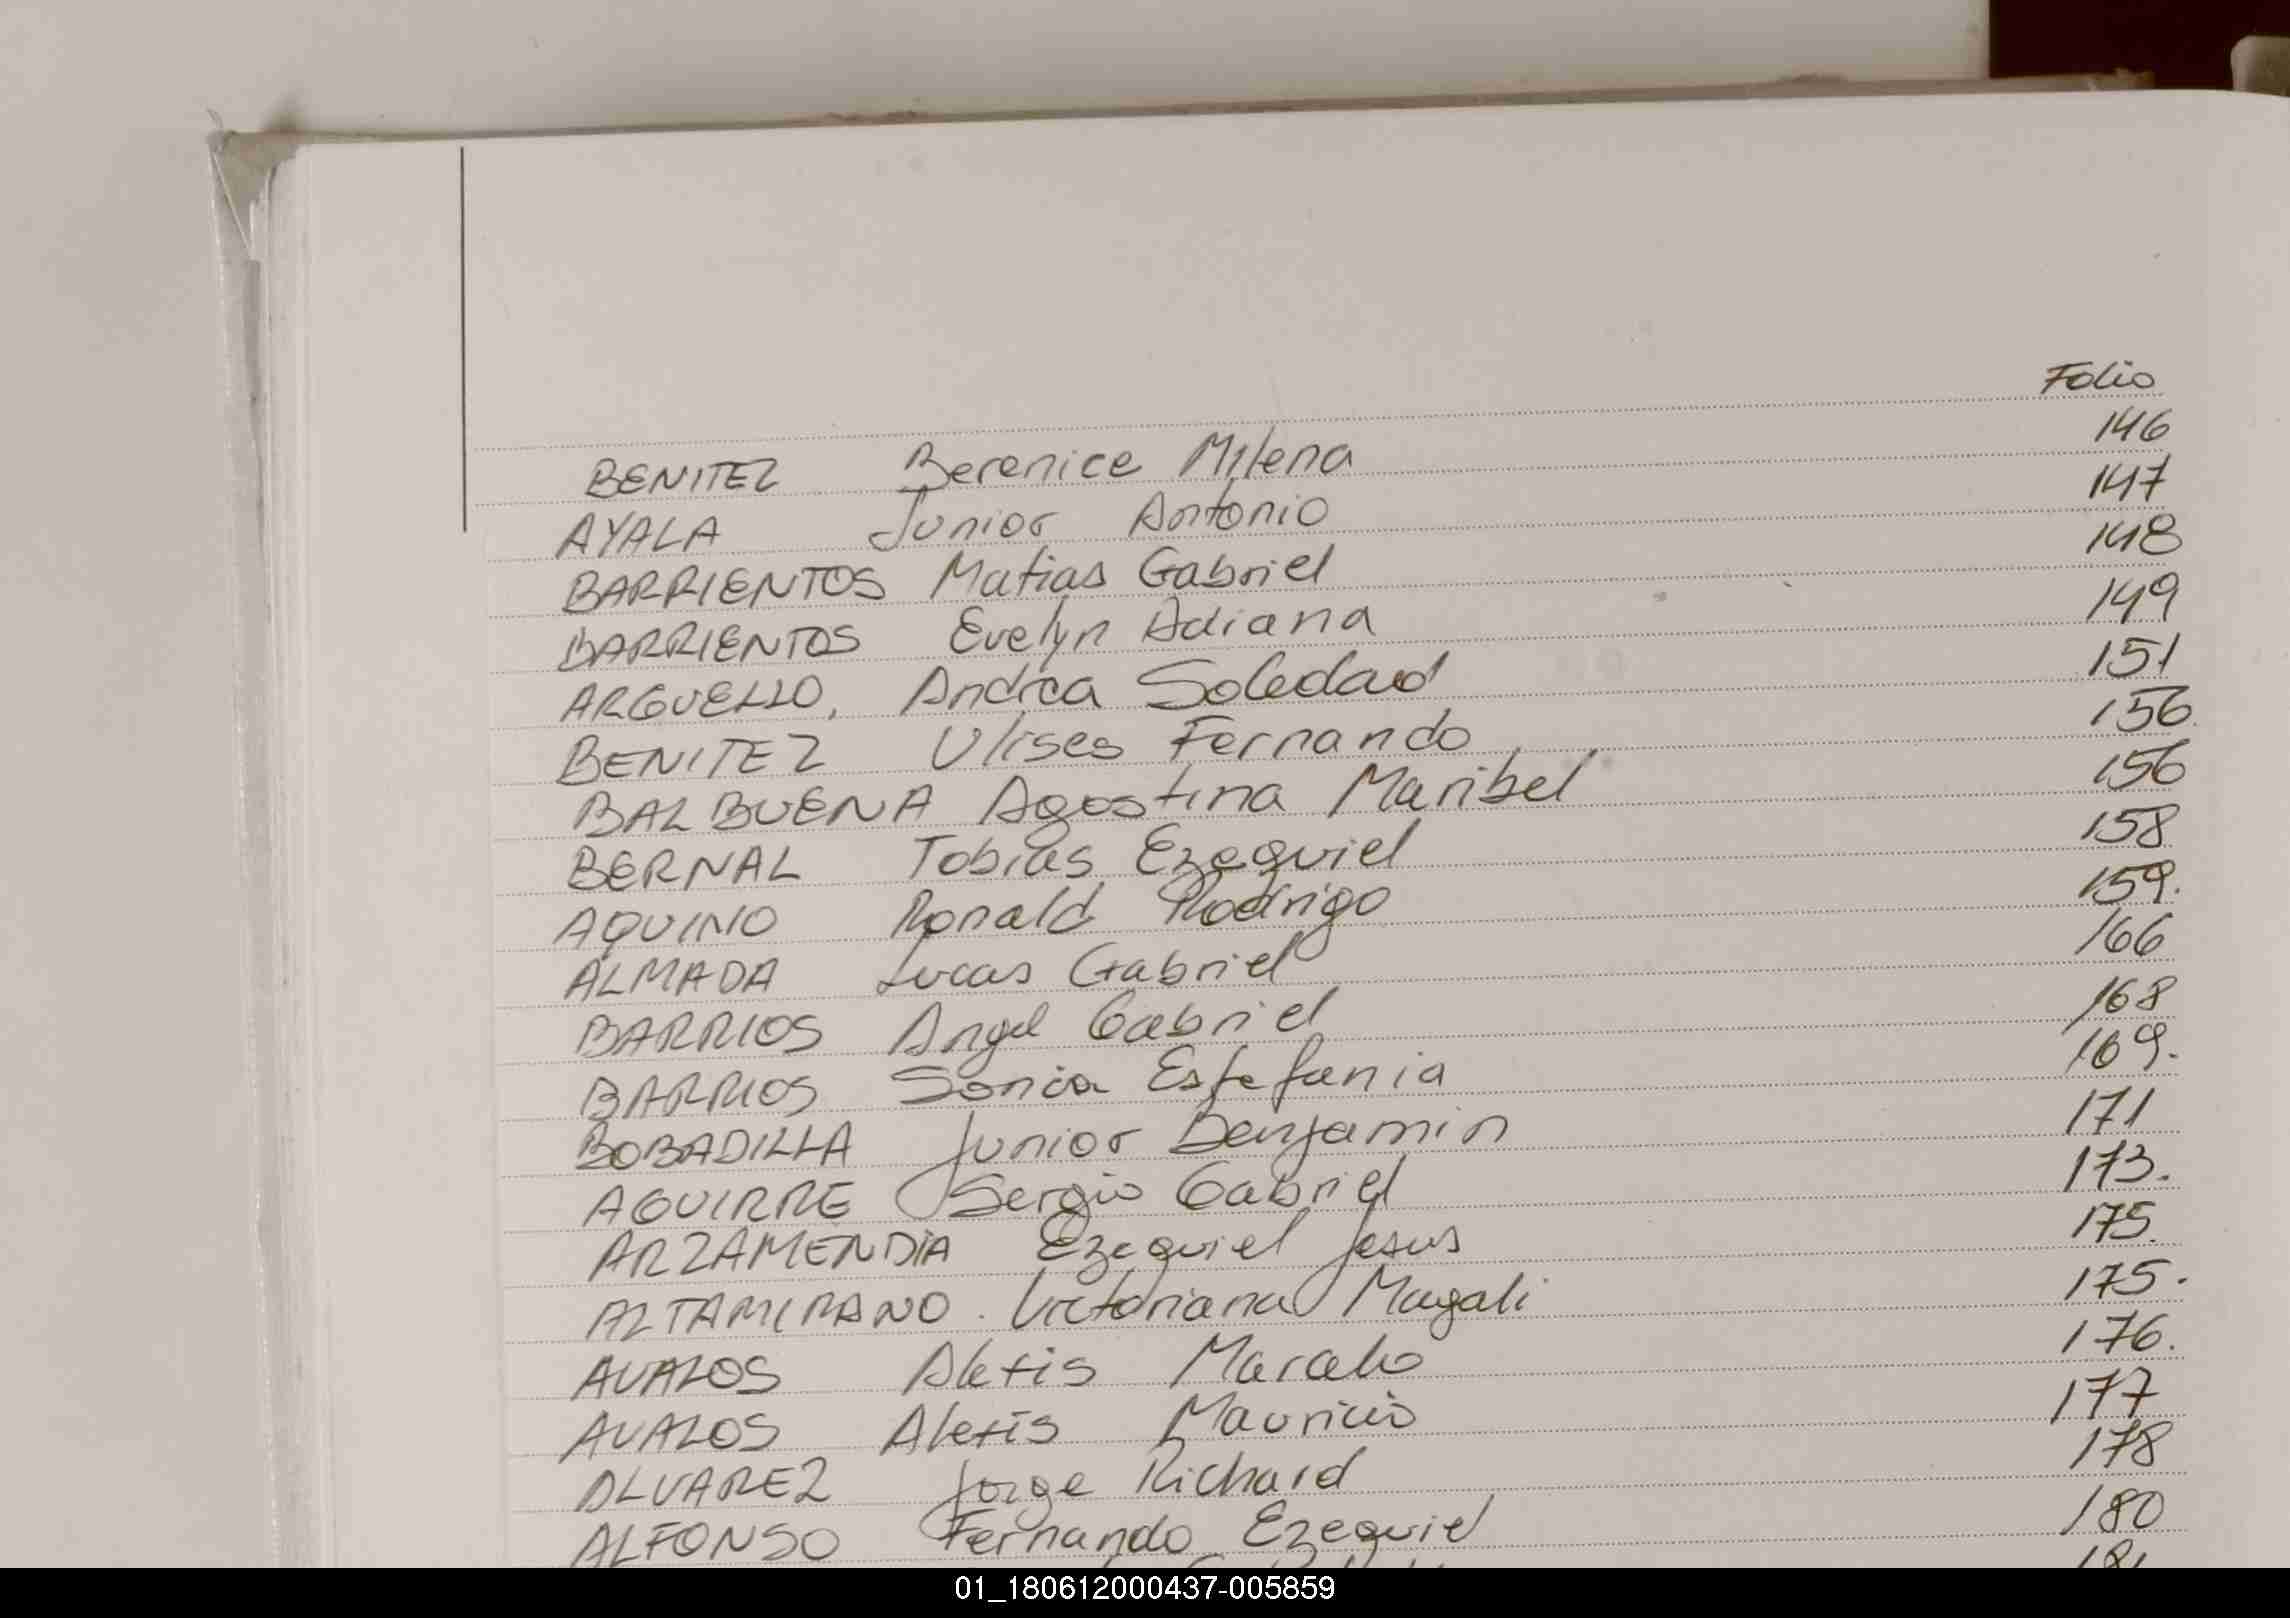 Folio
BENITEZ Berenice Milena 146
AYALA Junior Antonio 147
BARRIENTOS Matias Gabriel 148
BARRIENTOS Evelyn Adiana 149
ARGUELLO, Andrea Soledad 151
BENITEZ Ulises Fernando 156.
BALBUENA Agostina Maribel 156
BERNAL Tobias Ezequiel 158
AQUINO Ronald Rodrigo 159.
ALMADA Lucas Gabriel 166
BARRIOS Angel Gabriel 168
BARRIOS Sonia Estefania 169.
BOBADILLA Junior Benjamin 171
AGUIRRE Sergio Gabriel 173.
ARZAMENDIA Ezequiel Jesus 175.
ALTAMIRANO. Victoriana Magali 175.
AVALOS Alexis Marcelo 176.
AVALOS Alexis Mauricio 177
ALVAREZ Jorge Richard 178
ALFONSO Fernando Ezequiel 180
01_180612000437-005859